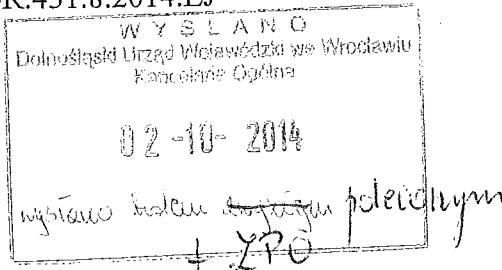 K.431.8.2014.EJ
WYSŁANO
Dolnośląski Urząd Wojewódzki we Wrocławiu
Kancelaria Ogólna
02 -10- 2014
wysłano listem zwykłym poleconym
+ ZPO